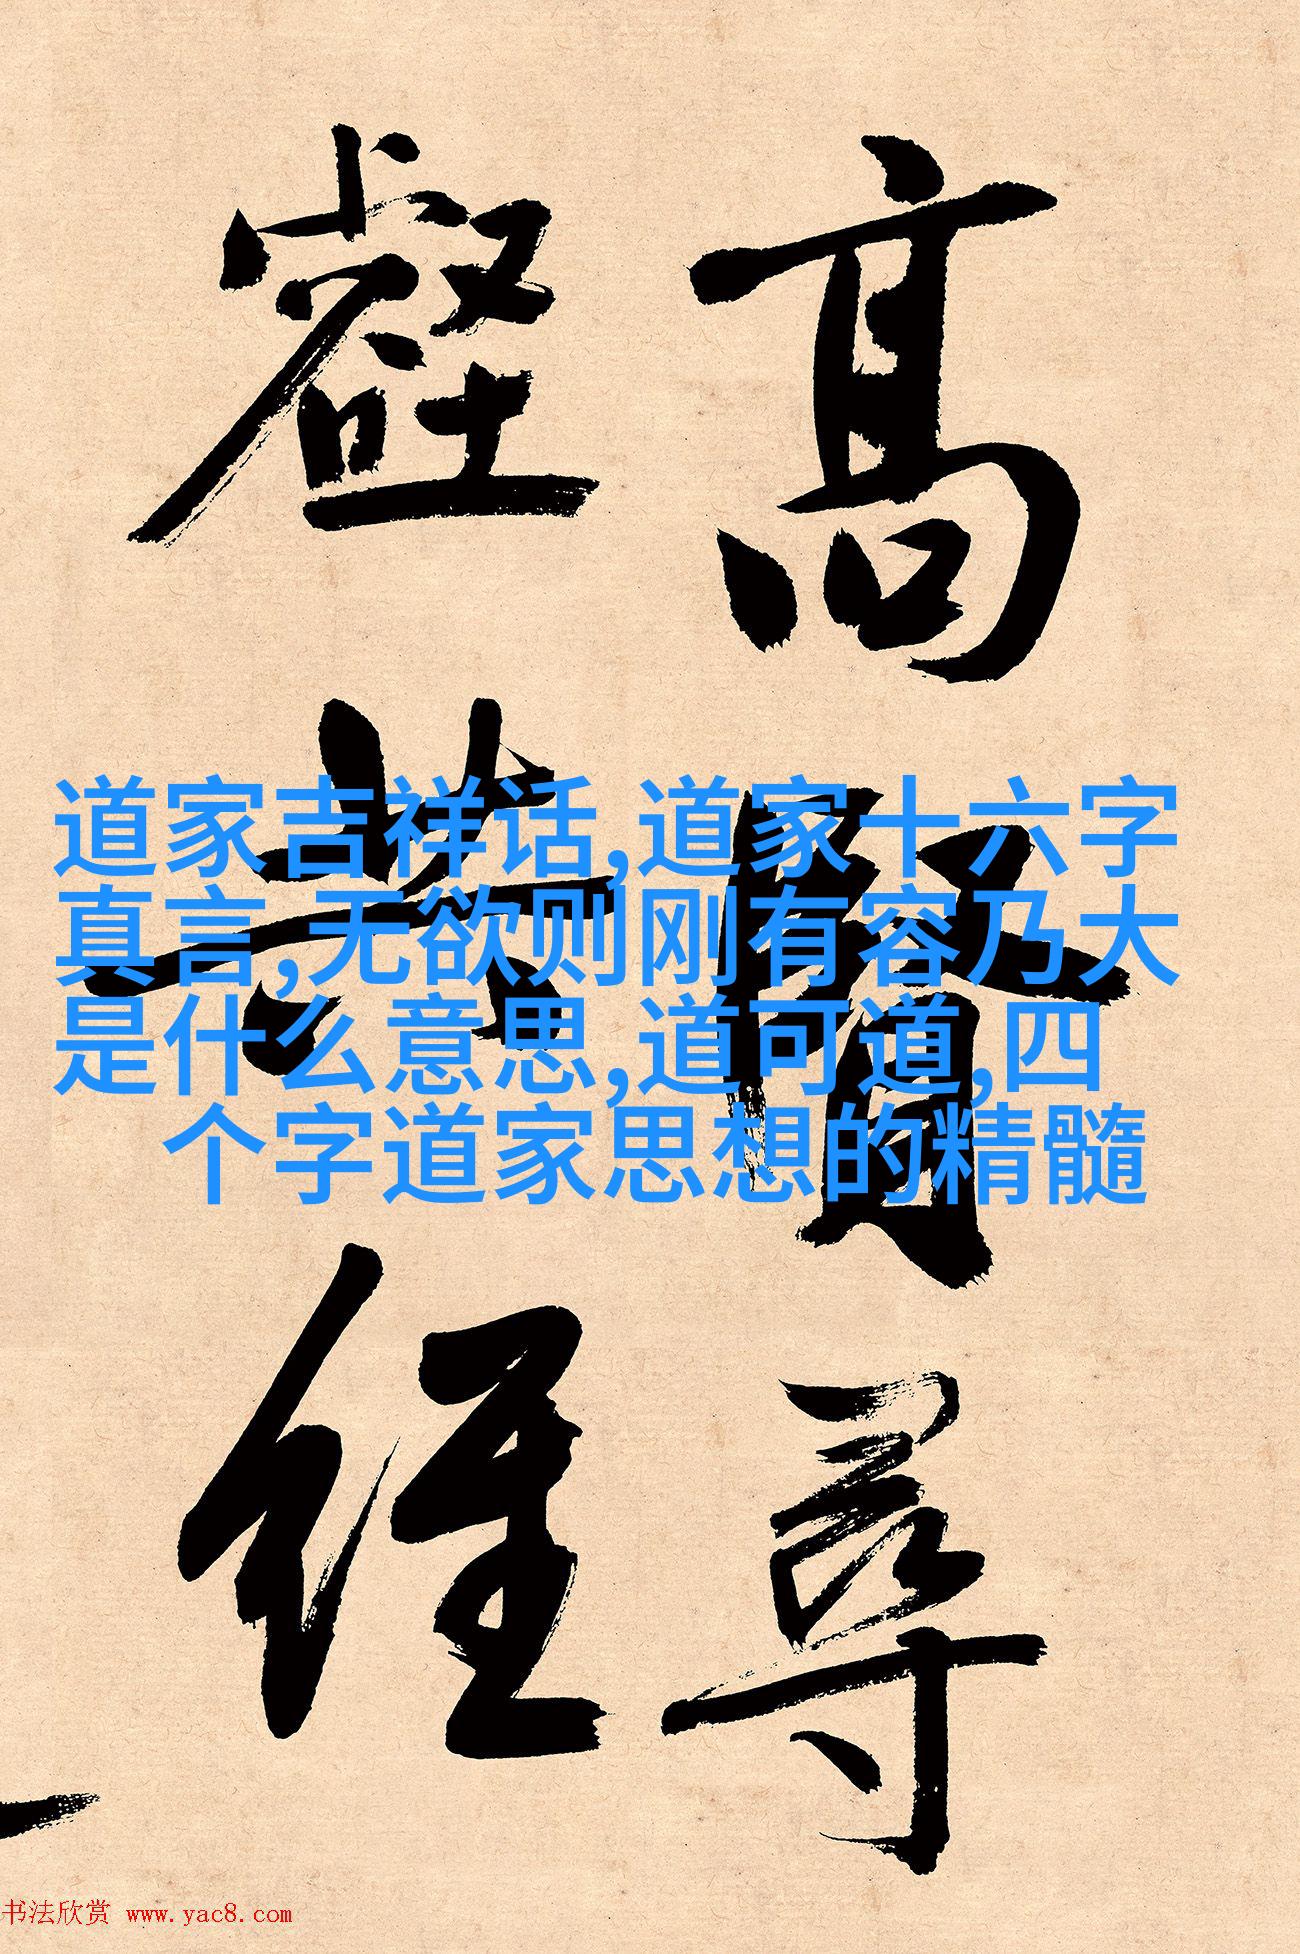 高賢尋
壑共經
道家吉祥话,道家十六字
真言,无欲则刚有容乃大
是什么意思,道可道,四
个字道家思想的精髓
书法欣赏 www.yac8.com